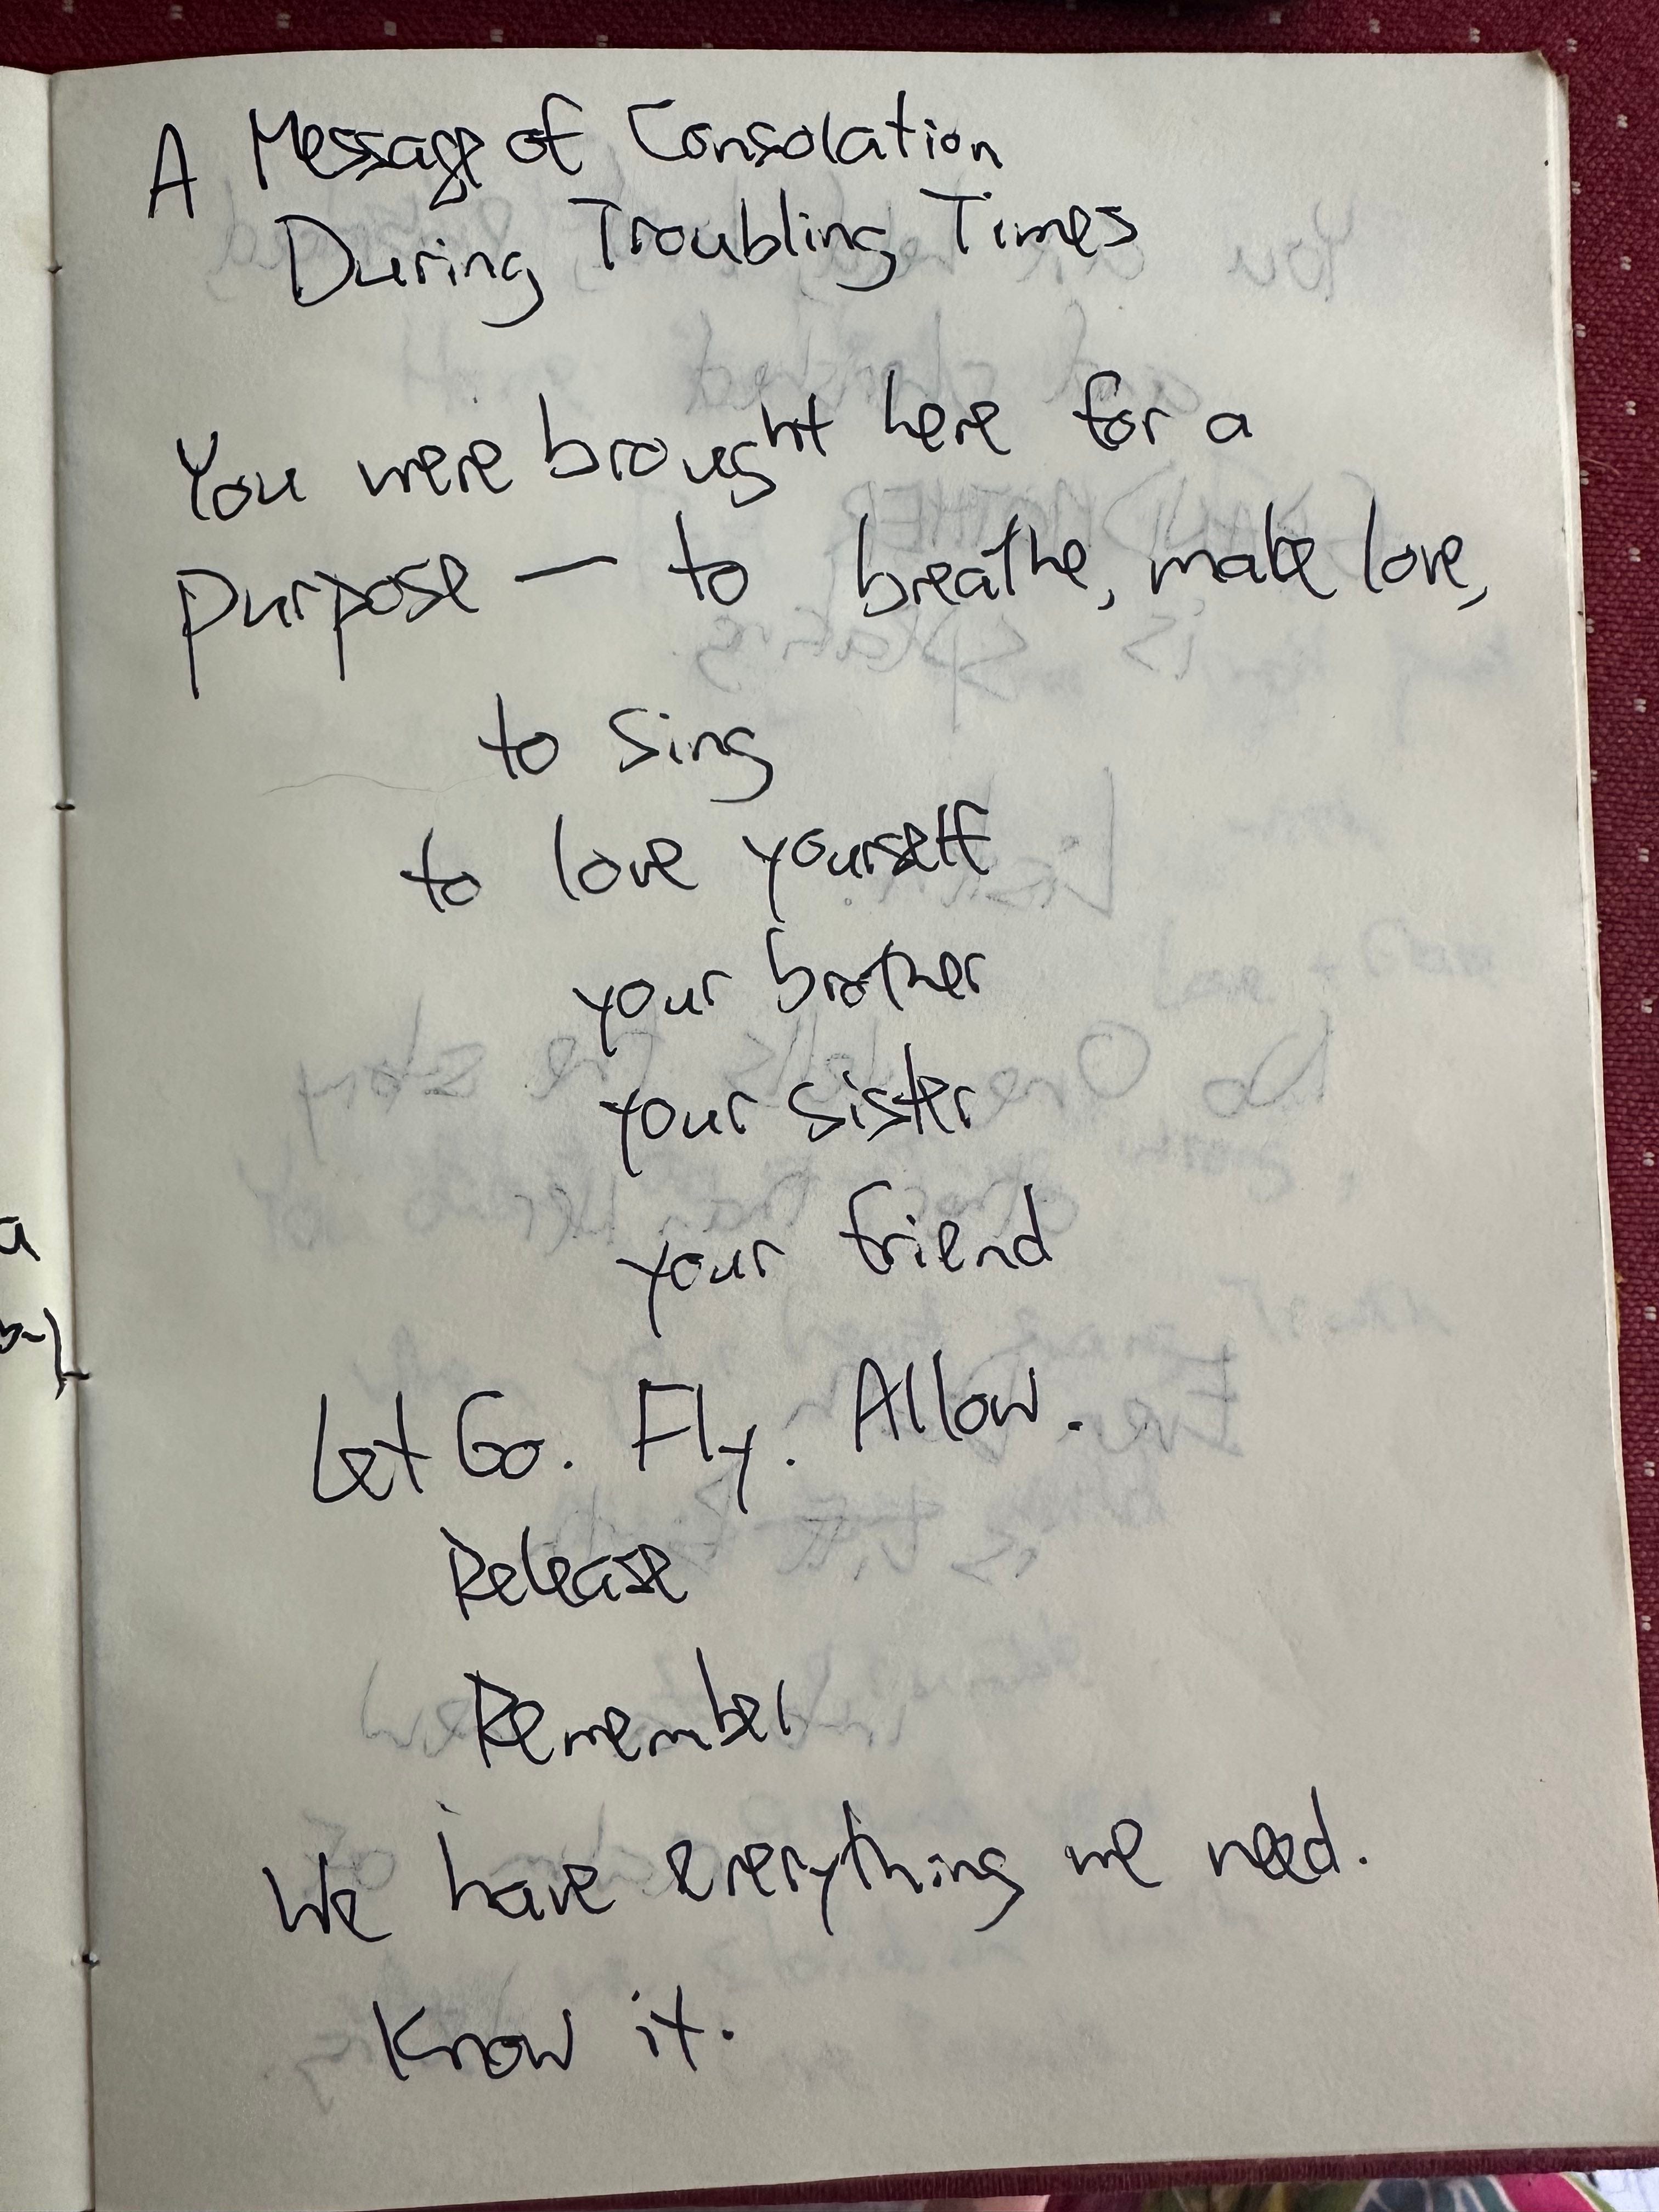 A Message of Consolation
During Troubling Times
You were brought here for a
purpose — to breathe, make love,
to sing
to love yourself
your brother
your sister
your friend
Let Go. Fly. Allow.
Release
Remember
We have everything we need.
Know it.